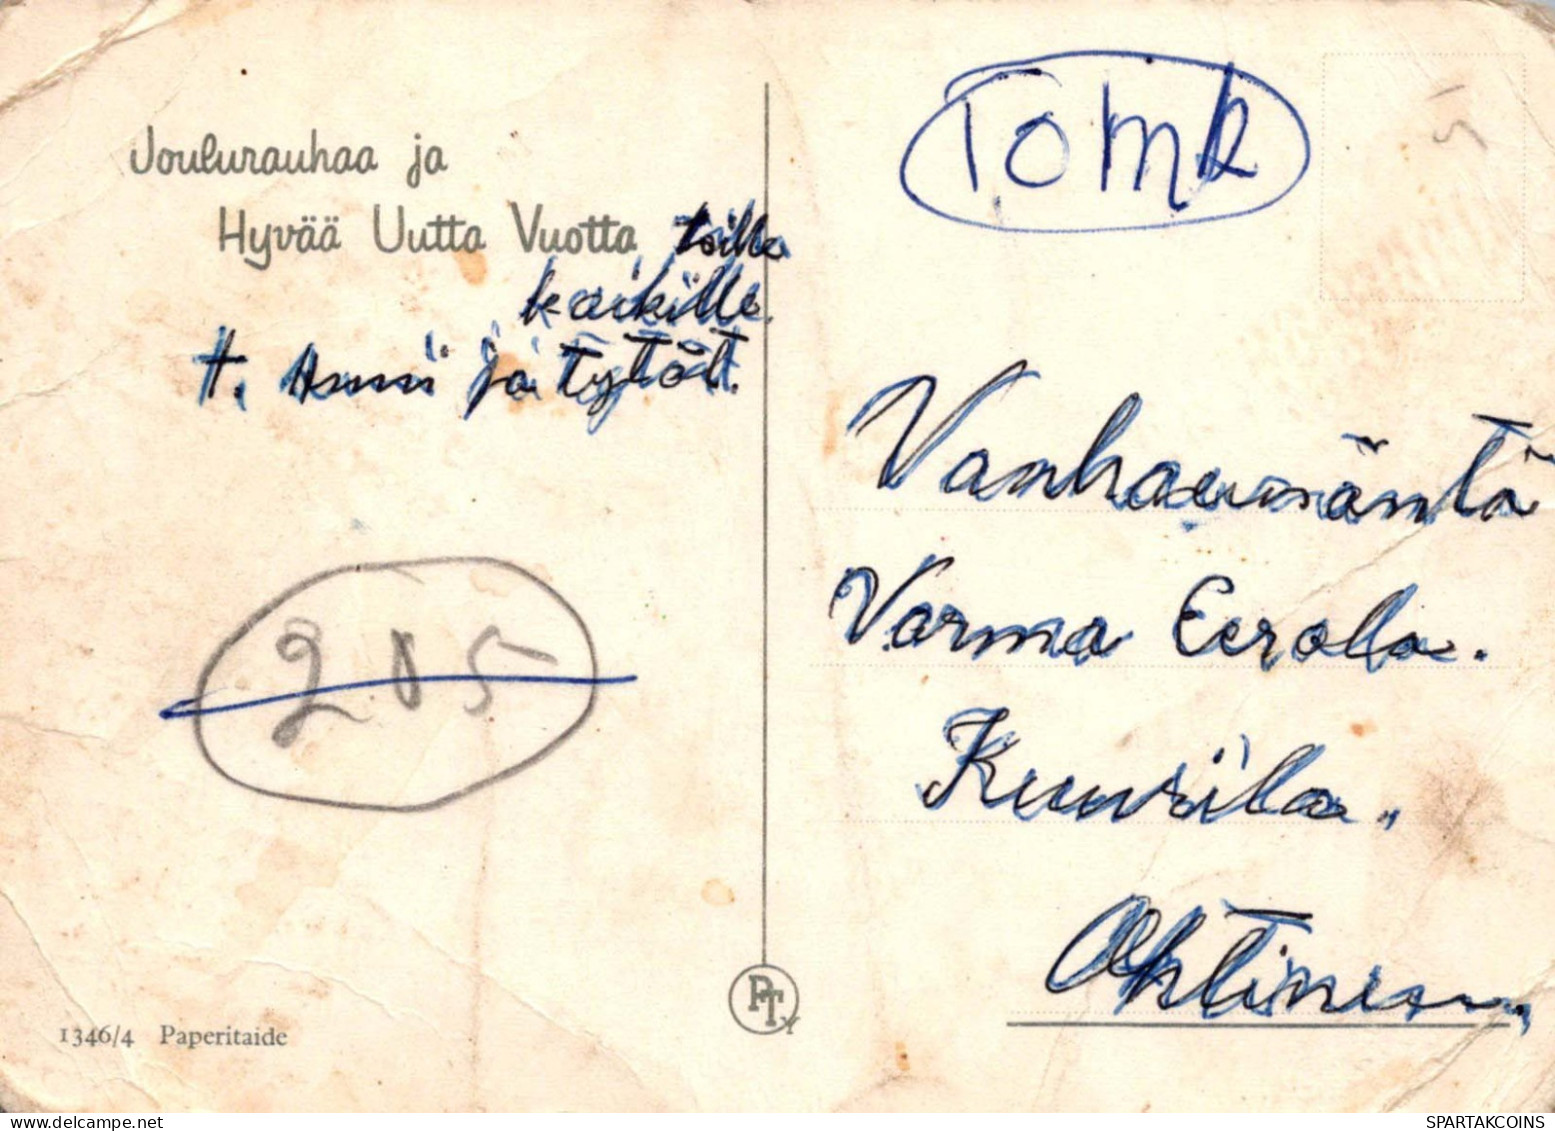 Joulurauhaa ja
Hyvää Uutta Vuotta toille
kaikille.
t. Anni ja Tytöt.
205
1346/4 Paperitaide
PTy
TOMK
Vanhaemäntä
Varma Eerola.
Kuurila.
Ohtinen
SPARTAKCOINS